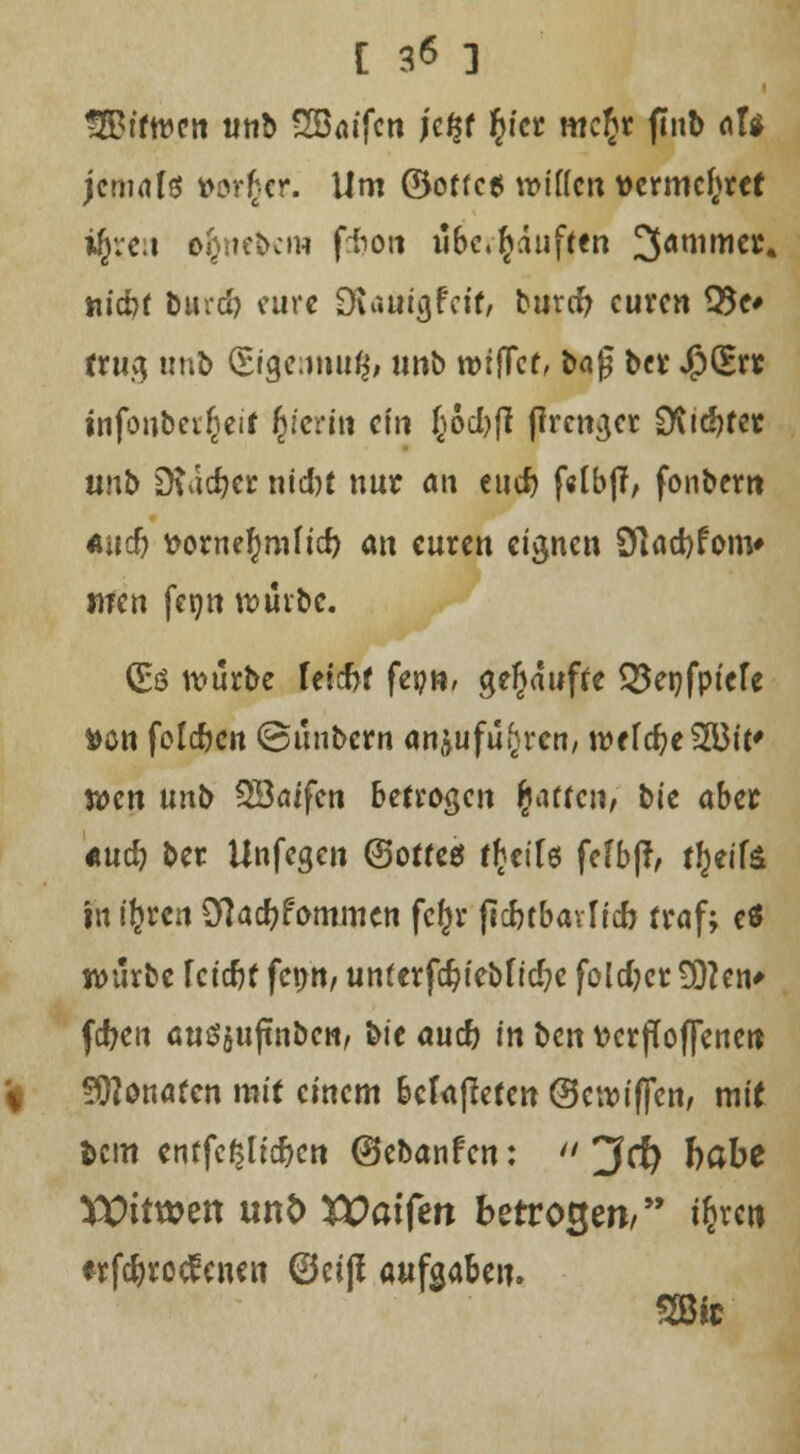 [ 36 ]
Witwen und Waisen jetzt hier mehr sind als
jemals vorher. Um Gottes willen vermehret
ihren ohnedem schon überhäuften Jammer
nicht durch eure Rauigkeit, durch euren Be-
trug und Eigennutz, und wisset, daß der HErr
insonderheit hierin ein höchst strenger Richter
und Rächer nicht nur an euch selbst, sondern
auch vornehmlich an euren eignen Nachkom-
men seyn würde.
Es würde leicht seyn, gehäufte Beyspiele
von solchen Sündern anzuführen, welche Wit-
wen und Waisen betrogen hatten, die aber
auch der Unsegen Gottes theils selbst, theils
in ihren Nachkommen sehr sichtbarlich traf; es
würde leicht seyn, unterschiedliche solcher Men-
schen auszufinden, die auch in den verflossenen
Monaten mit einem belasteten Gewissen, mit
dem entsetzlichen Gedanken: "Ich habe
Witwen und Waisen betrogen," ihren
erschrockenen Geist aufgaben.
Wie